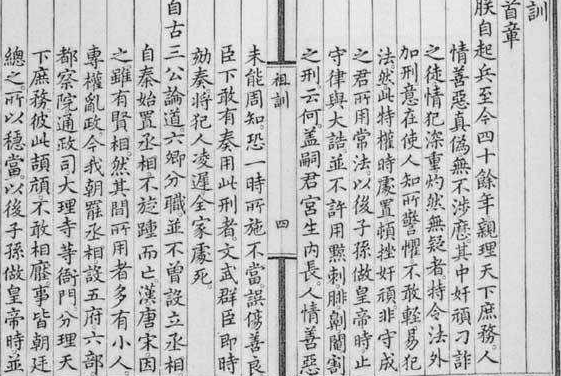 訓
首章
朕自起兵至今四十餘年親理天下庶務。人
情善惡真偽無不涉歷。其中奸頑刁詐
之徒情犯深重灼然無疑者特令法外
加刑意在使人知所警懼不敢輕易犯
法然此特權時處置頓挫奸頑非守成
之君所用常法。以後子孫做皇帝時止
守律與大誥並不許用黥刺腓劓閹割
之刑云何。蓋嗣君宮生內長。人情善惡
祖訓 四
未能周知恐一時所施不當誤傷善良
臣下敢有奏用此刑者文武群臣即時
劾奏將犯人凌遲全家處死
自古三公論道六卿分職並不曾設立丞相
自秦始置丞相不旋踵而亡。漢唐宋因
之雖有賢相。然其間所用者多有小人。
專權亂政今我朝罷丞相設五府六部
都察院通政司大理寺等衙門分理天
下庶務彼此頡頏不敢相壓事皆朝廷
總之。所以穩當以後子孫做皇帝時並